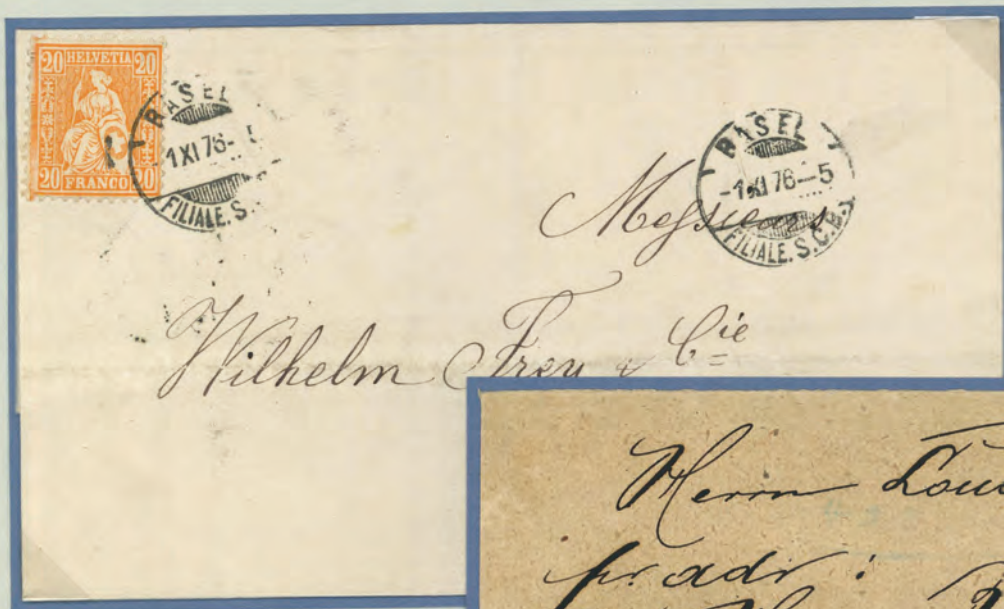 20 HELVETIA 20
20 FRANCO 20
BASEL
1 XI 76-
FILIALE. S.
BASEL
-1 XI 76-5
FILIALE. S. C. B.
Messieurs
Wilhelm Frey & Cie
Herrn Loui
pr. adr :